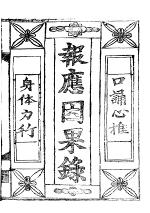 口誦心推
報應因果錄
身体力行